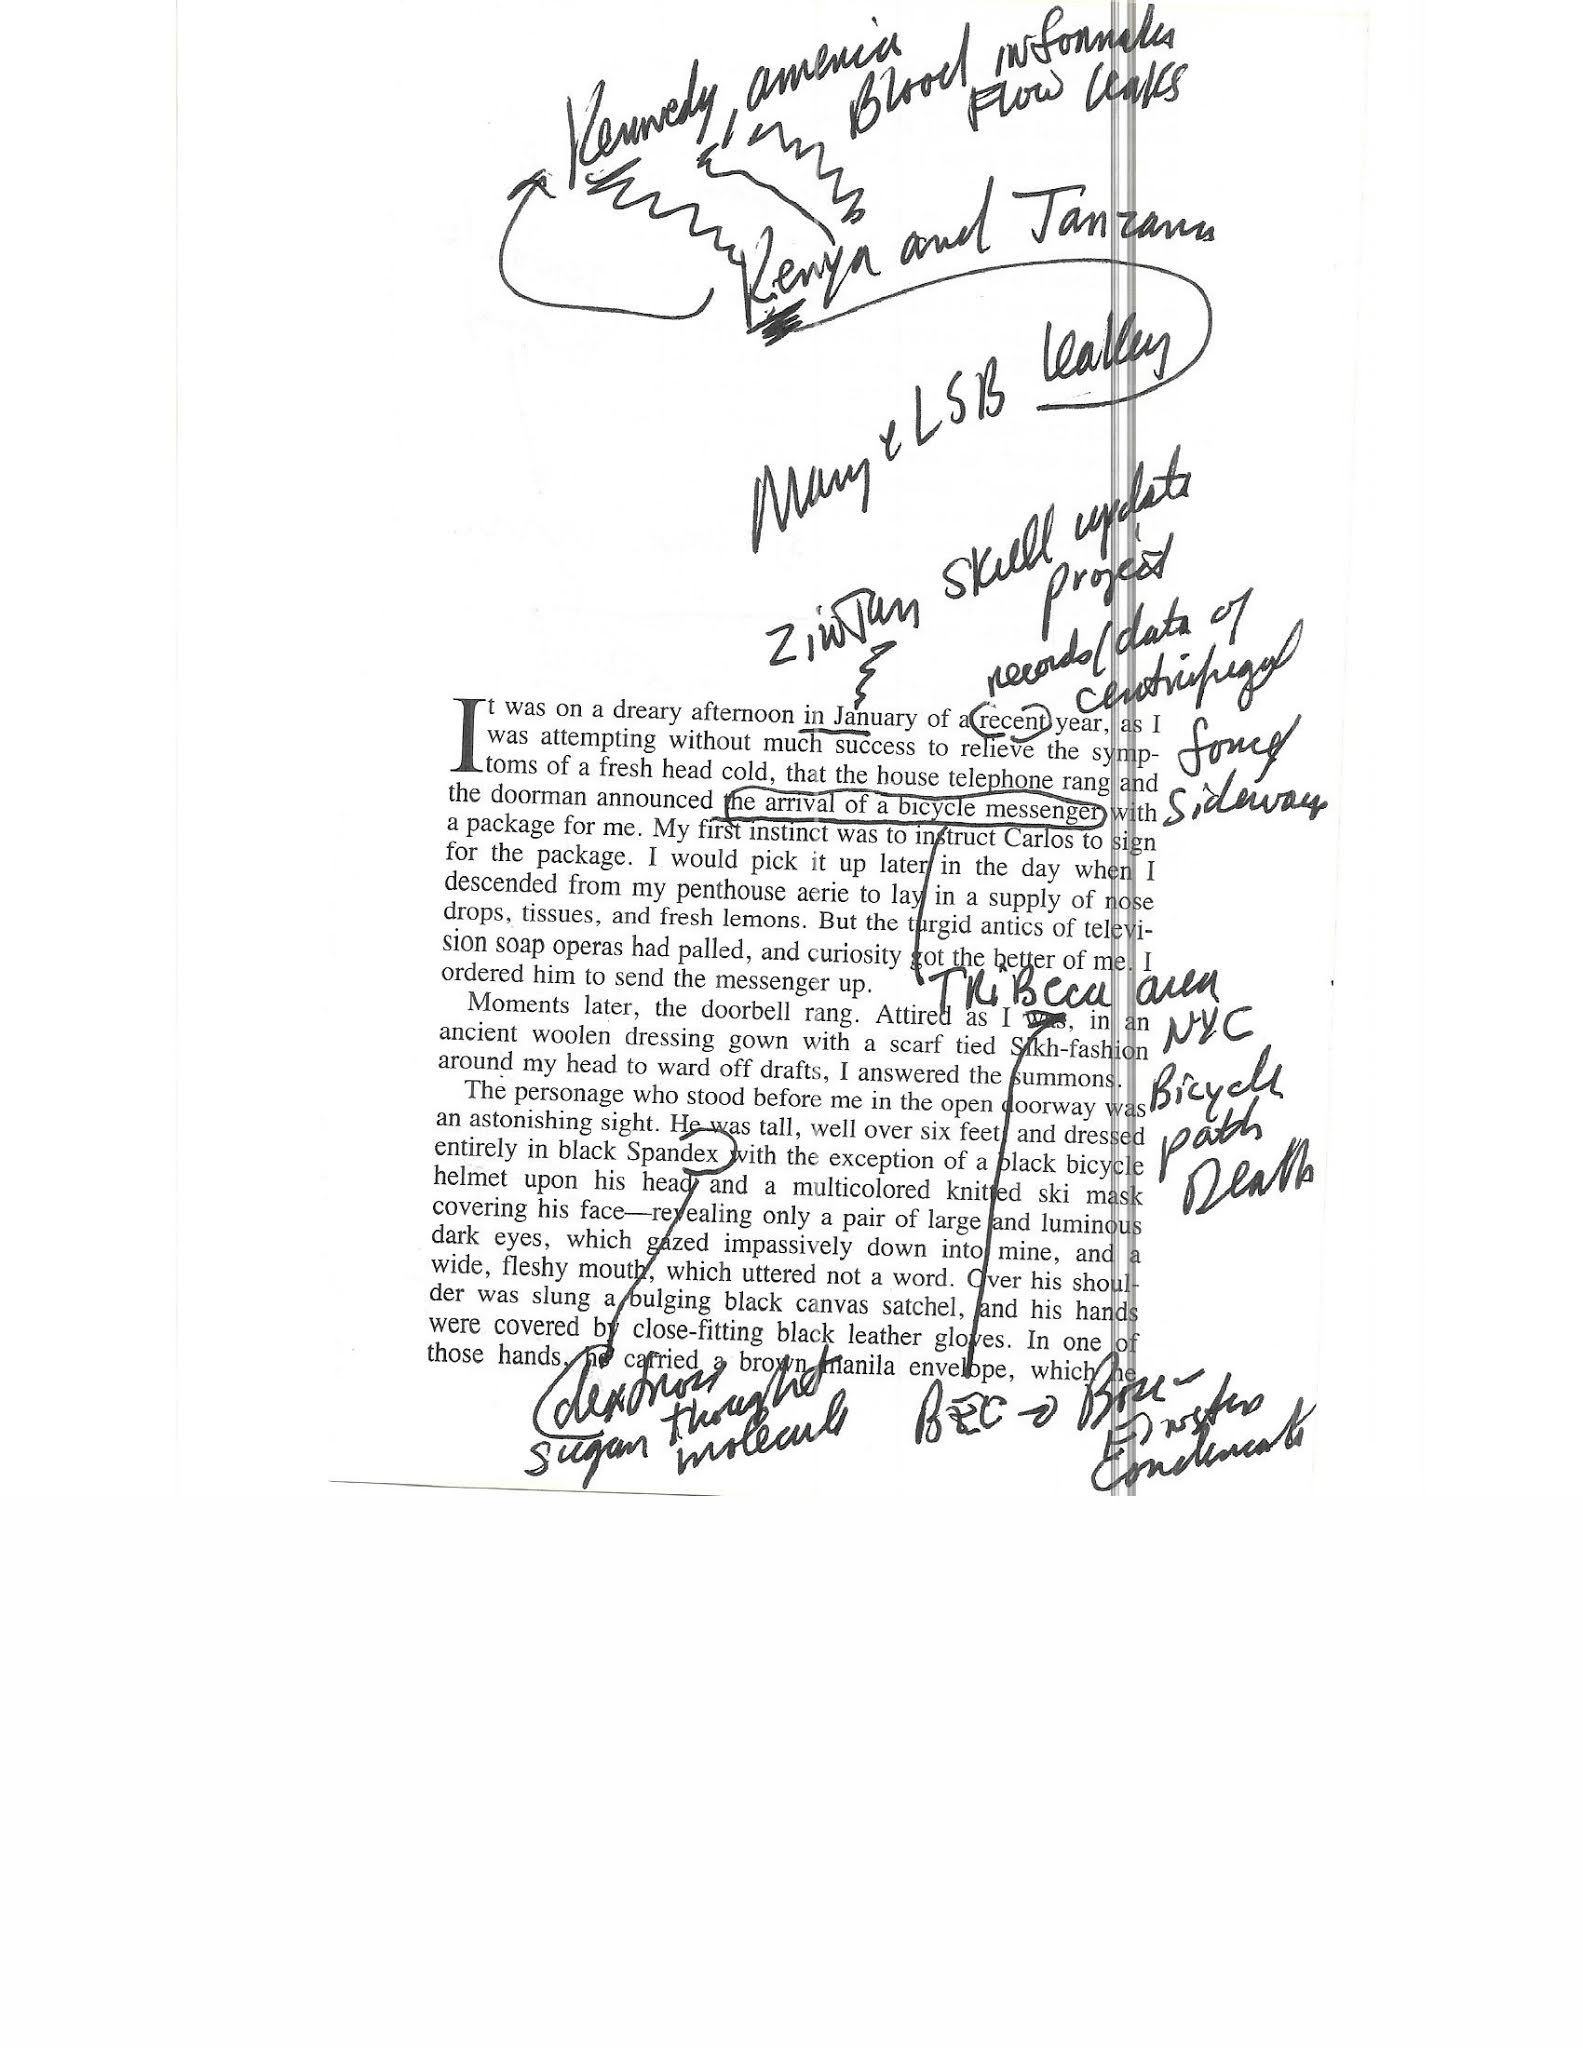 Kennedy, america
Blood information
Flow leaks
Kenya and Tanzania
Mary & LSB Leakey
ZinJan skull update
project
records/data of
centrifugal
force
sideways
It was on a dreary afternoon in January of a recent year, as I
was attempting without much success to relieve the symp-
toms of a fresh head cold, that the house telephone rang and
the doorman announced the arrival of a bicycle messenger with
a package for me. My first instinct was to instruct Carlos to sign
for the package. I would pick it up later in the day when I
descended from my penthouse aerie to lay in a supply of nose
drops, tissues, and fresh lemons. But the turgid antics of televi-
sion soap operas had palled, and curiosity got the better of me. I
ordered him to send the messenger up.
TRiBeca area
NYC
Bicycle
path
Deaths
Moments later, the doorbell rang. Attired as I was, in an
ancient woolen dressing gown with a scarf tied Sikh-fashion
around my head to ward off drafts, I answered the summons.
The personage who stood before me in the open doorway was
an astonishing sight. He was tall, well over six feet, and dressed
entirely in black Spandex with the exception of a black bicycle
helmet upon his head and a multicolored knitted ski mask
covering his face—revealing only a pair of large and luminous
dark eyes, which gazed impassively down into mine, and a
wide, fleshy mouth, which uttered not a word. Over his shoul-
der was slung a bulging black canvas satchel, and his hands
were covered by close-fitting black leather gloves. In one of
those hands, he carried a brown manila envelope, which he
dextrose thought
sugar molecule
BEC → Bose-
Einstein
Condensate